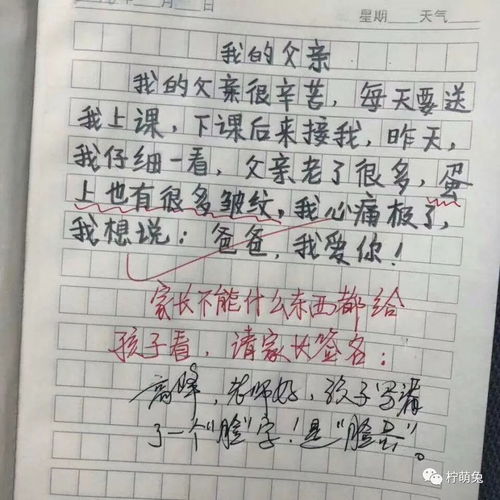 月 日 星期 天气
我的父亲
我的父亲很辛苦，每天要送
我上课，下课后来接我，昨天，
我仔细一看，父亲老了很多，蛋
上也有很多皱纹，我心痛极了，
我想说：爸爸，我爱你！
家长不能什么东西都给
孩子看，请家长签名：
高峰，老师好，孩子写漏
了一个“脸”字！是“脸蛋”。
柠萌兔